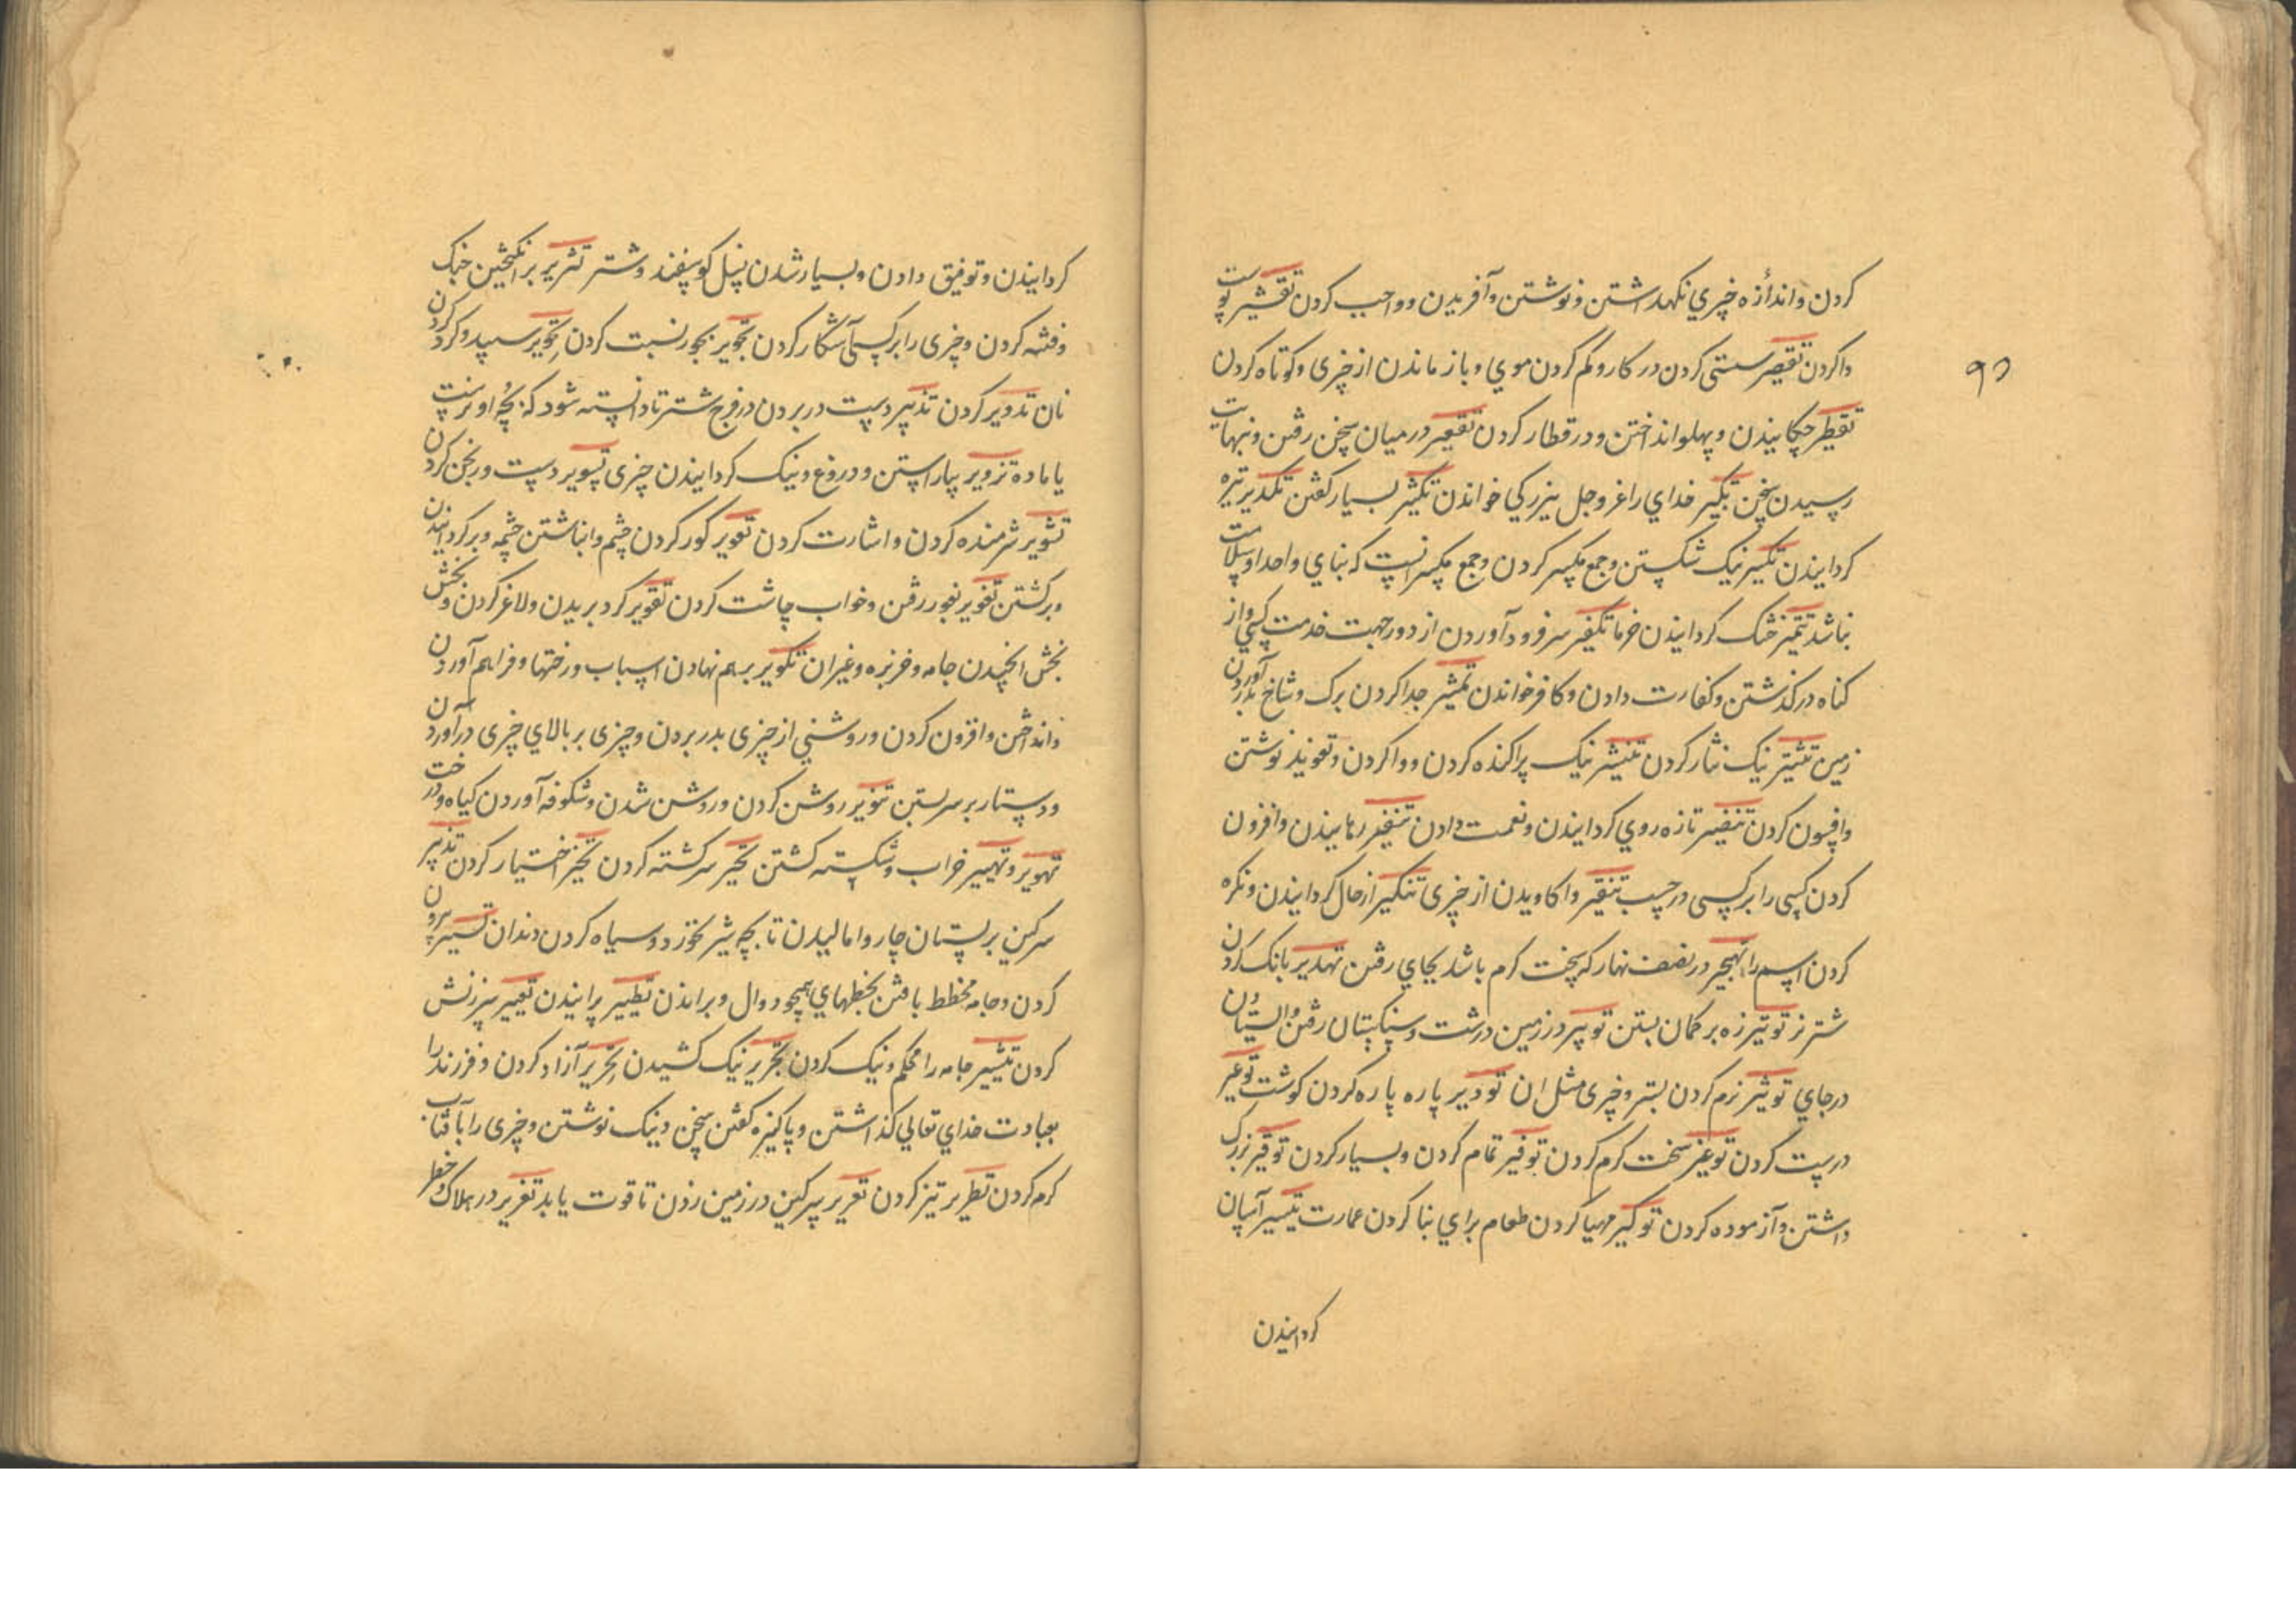 کردن و اندازه چیزی نکهداشتن و نوشتن و آفریدن و واجب کردن تقشیر پوست
واکردن تقصیر سستی کردن در کار و کم کردن موي و باز ماندن از چیزی و کوتاه کردن
تقطیر چکانیدن و پهلو انداختن و در قطار کردن تقعیر در میان سخن رفتن و بنهایت
رسیدن سخن تکبیر خداي را عز وجل ببزرکي خواندن تکثیر بسیار کفتن تکدیر تیره
کردانیدن تکسیر نیک شکستن و جمع مکسر کردن و جمع مکسر انست که بناي واحد او سلامت
نباشد تتمیر خشک کردانیدن خرما تکفیر سر فرود آوردن از دور جهت خدمت کسي و از
کناه در کذشتن و کفارت دادن و کافر خواندن تمشیر جدا کردن برک و شاخ بدر آوردن
زمین تنثیر نیک نثار کردن تنشیر نیک پراکنده کردن و واکردن و تعویذ نوشتن
وافسون کردن تنضیر تازه روي کردانیدن و نعمت دادن تنفیر رمانیدن و افزون
کردن کسی را بر کسی در حسب تنقیر واکاویدن از چیزی تنکیر از حال کردانیدن و نکره
کردن اسم را تهجیر در نصف نهار که سخت کرم باشد بجاي رفتن تهدیر بانک کردن
شتر نر توتیر زه بر کمان بستن توبیر در زمین درشت و سنکستان رفتن و ایستادن
در جاي توثیر نرم کردن بستر و چیزی مثل ان تودیر پاره پاره کردن کوشت توعیر
درست کردن توغیر سخت کرم کردن توفیر تمام کردن و بسیار کردن توقیر بزرک
داشتن و آزموده کردن توکیر مهیا کردن طعام براي بنا کردن عمارت تیسیر آسان
کردانیدن
۹۲
کردانیدن و توفیق دادن و بسیار شدن نسل کوسفند و شتر تثریر برانکیختن خبک
و فتنه کردن و چیزی را بر کسی آشکار کردن تجویر بجور نسبت کردن تحویر سپید و کرد کردن
نان تدویر کردن تذییر دست در بردن در فرج شتر تا دانسته شود که بچهٔ او نرست
یا ماده تزویر بیاراستن و دروغ و نیک کردانیدن چیزی تسویر دست ورنجن کردن
تشویر شرمنده کردن و اشارت کردن تعویر کور کردن چشم و انباشتن چشمه و برکردانیدن
و برکشتن تغویر بغور رفتن و خواب چاشت کردن تقویر کرد بریدن و لاغر کردن و بخش
بخش جامه و خربزه و غیر ان تکویر بهم نهادن اسباب و رختها و فراهم آوردن
وانداختن و افزون کردن و روشني از چیزی بدر بردن و چیزی بر بالاي چیزی در آوردن
و دستار بر سر بستن تنویر روشن کردن و روشن شدن و شکوفه آوردن کیاه و درخت
تهویر و تهییر خراب و شکسته کشتن تحیر سرکشته کردن تخیر اختیار کردن تذییر
سرکین بر پستان چاروا مالیدن تا بچه شیر نخورد و سیاه کردن دندان تسییر بیرون
کردن و جامه مخطط بافتن بخطهاي همچو دوال و براندن تطییر پرانیدن تعییر سرزنش
کردن تنییر جامه را محکم و نیک کردن تجریر نیک کشیدن تحریر آزاد کردن و فرزند را
بعبادت خداي تعالي کذاشتن و پاکیزه کفتن سخن و نیک نوشتن و چیزی را بآفتاب
کرم کردن تطریر تیز کردن تعریر سرکین در زمین زدن تا قوت یابد تغریر در هلاک و خطر